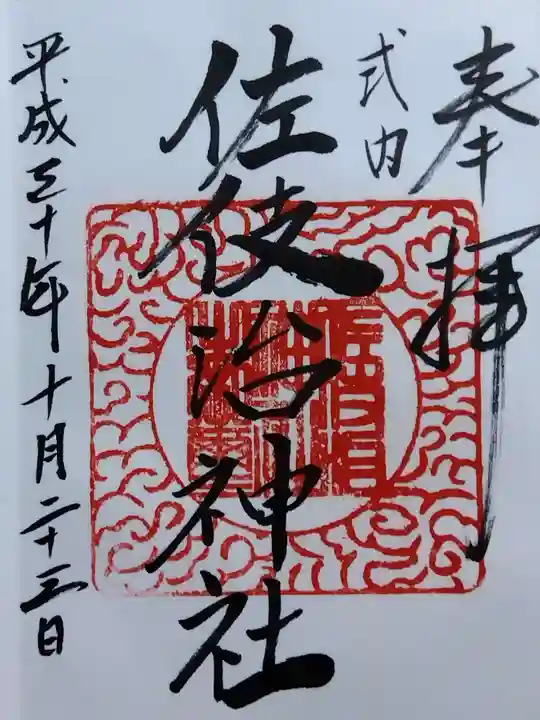 奉拝
式内
佐伎治神社
平成三十年十月二十三日